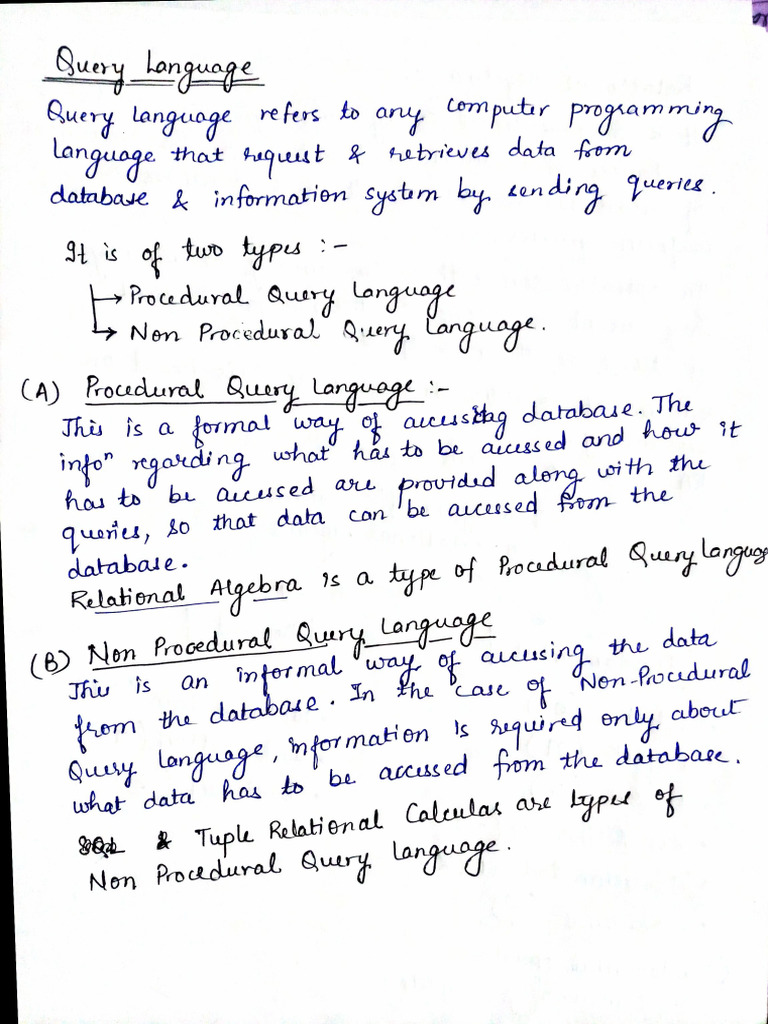 Query Language
Query Language refers to any computer programming
Language that request & retrieves data from
database & information system by sending queries.
It is of two types :-
→ Procedural Query Language
→ Non Procedural Query Language.
(A) Procedural Query Language :-
This is a formal way of accessing database. The
infoⁿ regarding what has to be accessed and how it
has to be accessed are provided along with the
queries, so that data can be accessed from the
database.
Relational Algebra is a type of Procedural Query Language
(B) Non Procedural Query Language
This is an informal way of accessing the data
from the database. In the case of Non-Procedural
Query Language, information is required only about
what data has to be accessed from the database.
& Tuple Relational Calculas are types of
Non Procedural Query Language.